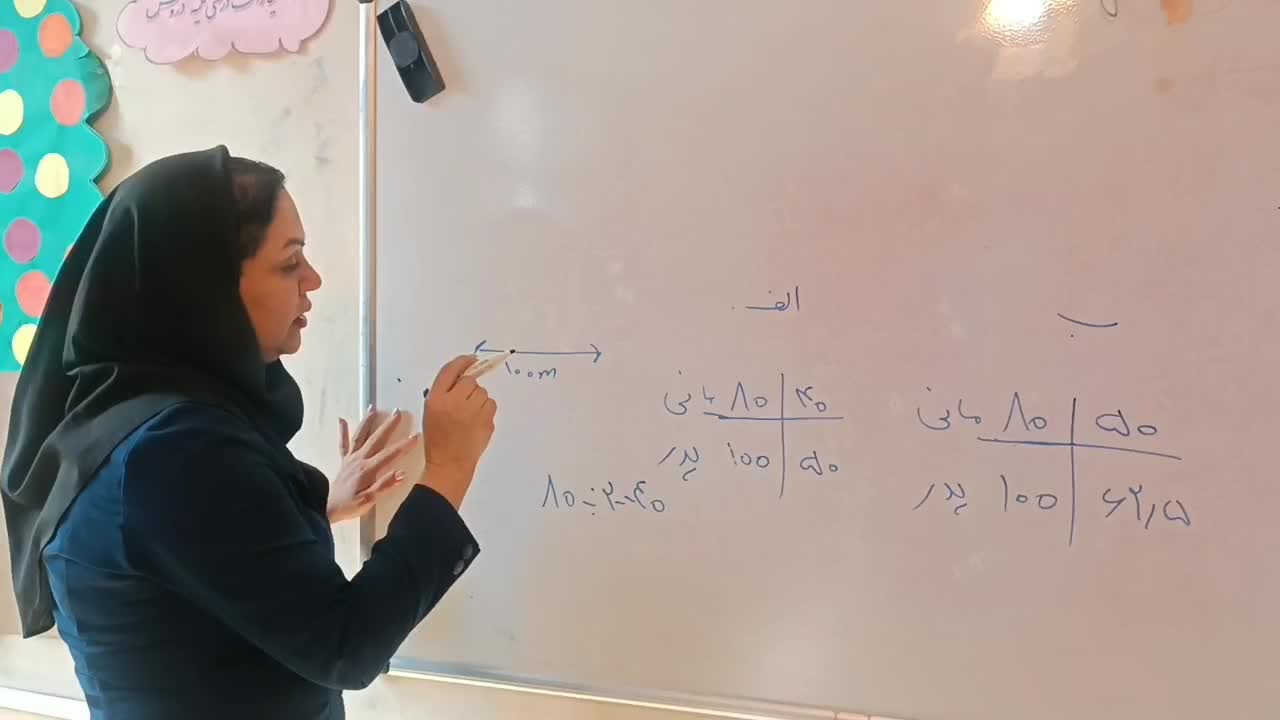 الف
ب
۱۰۰m
مانی ۸۰ ۴۰
پدر ۱۰۰ ۵۰
مانی ۸۰ ۵۰
پدر ۱۰۰ ۶۲٫۵
۸۰÷۲=۴۰